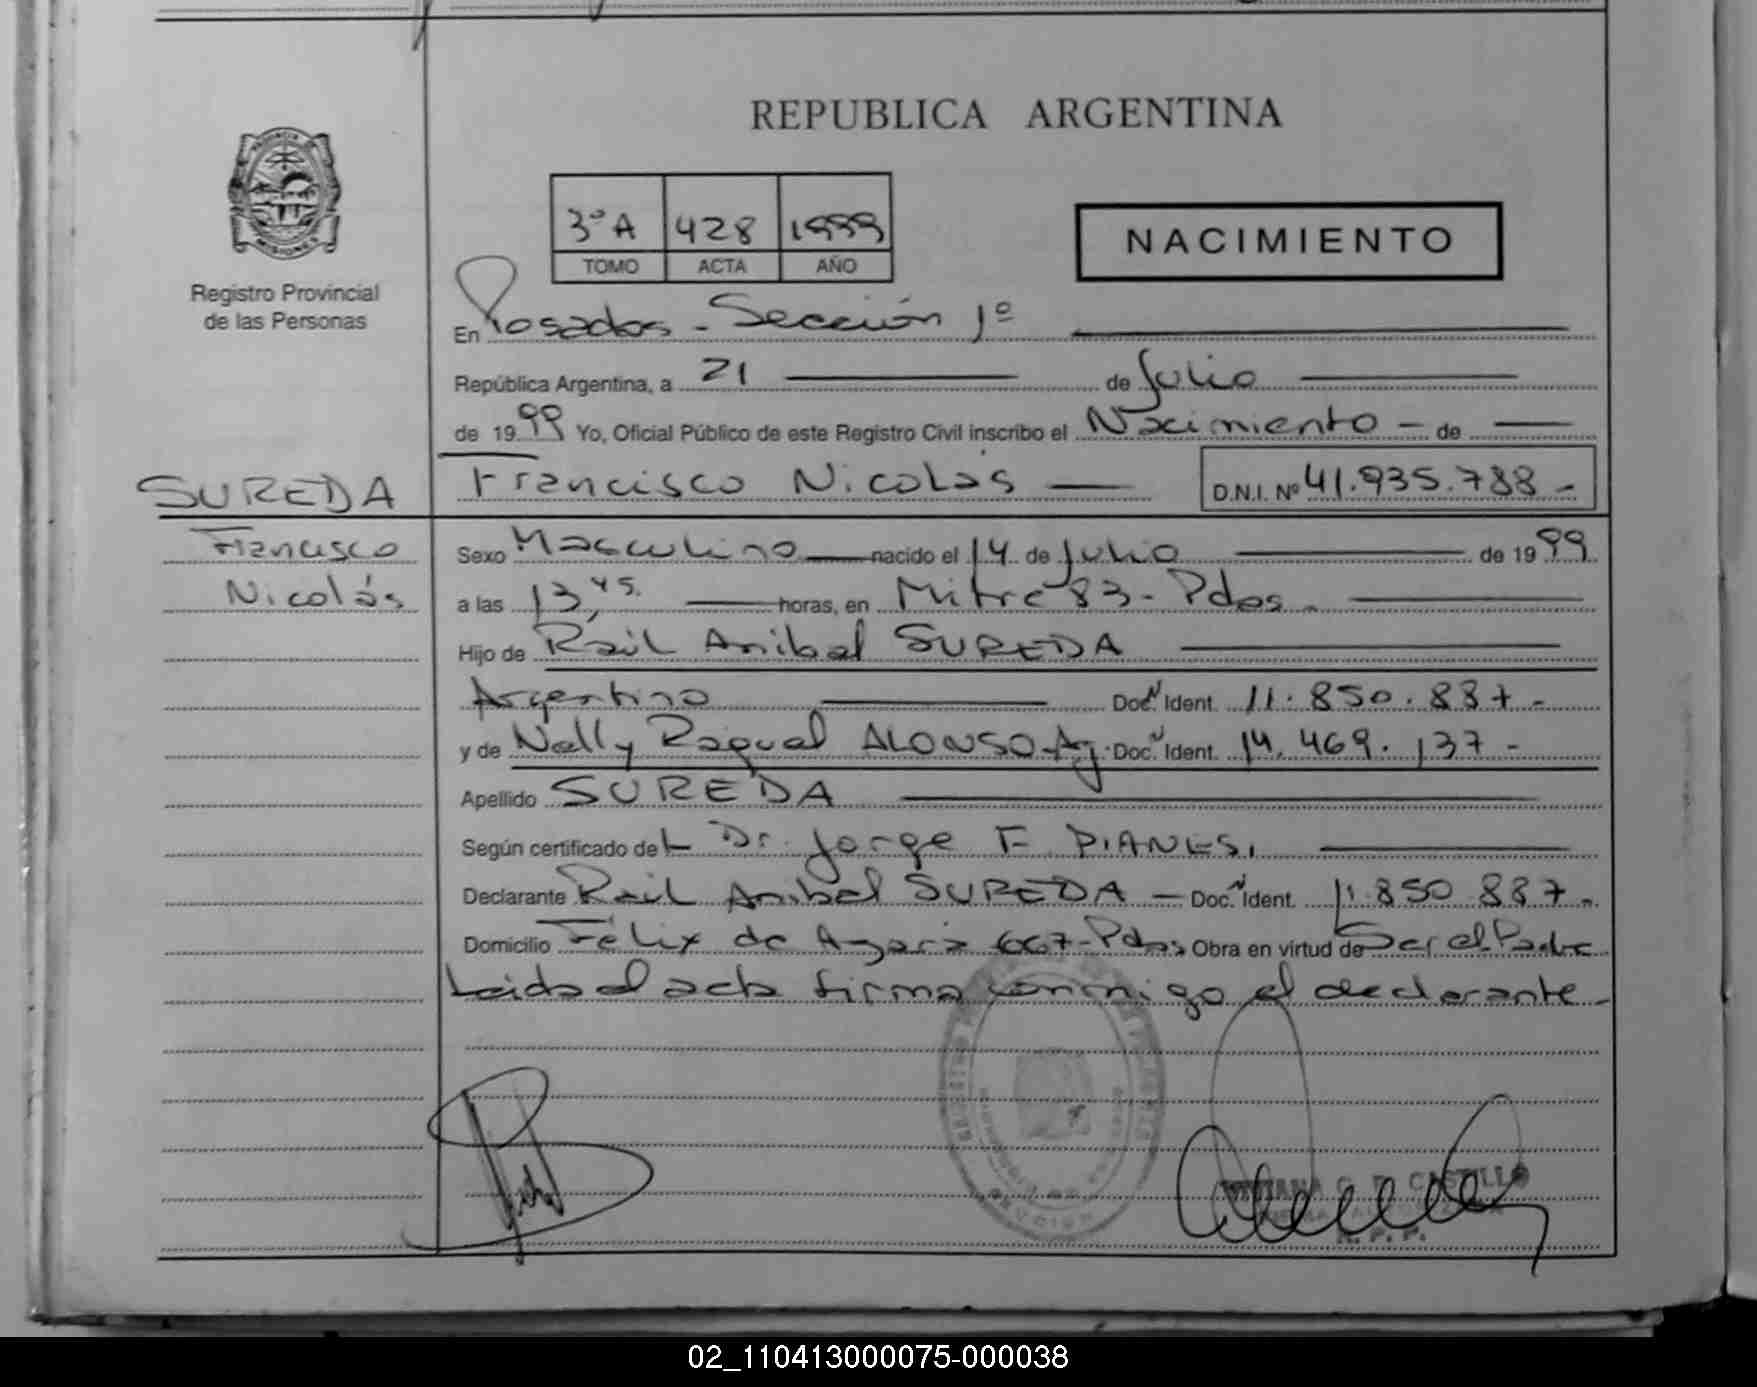 REPUBLICA ARGENTINA
PROVINCIA DE
MISIONES
Registro Provincial
de las Personas
3º A 428 1999
TOMO ACTA AÑO
NACIMIENTO
En Posadas - Sección 1º
República Argentina, a 21 de Julio
de 1999 Yo, Oficial Público de este Registro Civil inscribo el Nacimiento - de
SUREDA Francisco Nicolás D.N.I. Nº 41.935.788 -
Francisco Sexo Masculino nacido el 14 de Julio de 1999
Nicolás a las 13,45. horas, en Mitre 83 - Pdas.
Hijo de Raúl Anibal SUREDA
Argentino Doc. Ident. 11.850.887 -
y de Nelly Raquel ALONSO - Ag. Doc. Ident. 14.469.137 -
Apellido SUREDA
Según certificado del Dr. Jorge F. PIANESI
Declarante Raúl Anibal SUREDA - Doc. Ident. 11.850.887 -
Domicilio Félix de Azara 667 - Pdas Obra en virtud de Ser el Padre
Leida el acta firma conmigo el declarante -
C. P. CASTILLO
R. P. P.
02_110413000075-000038